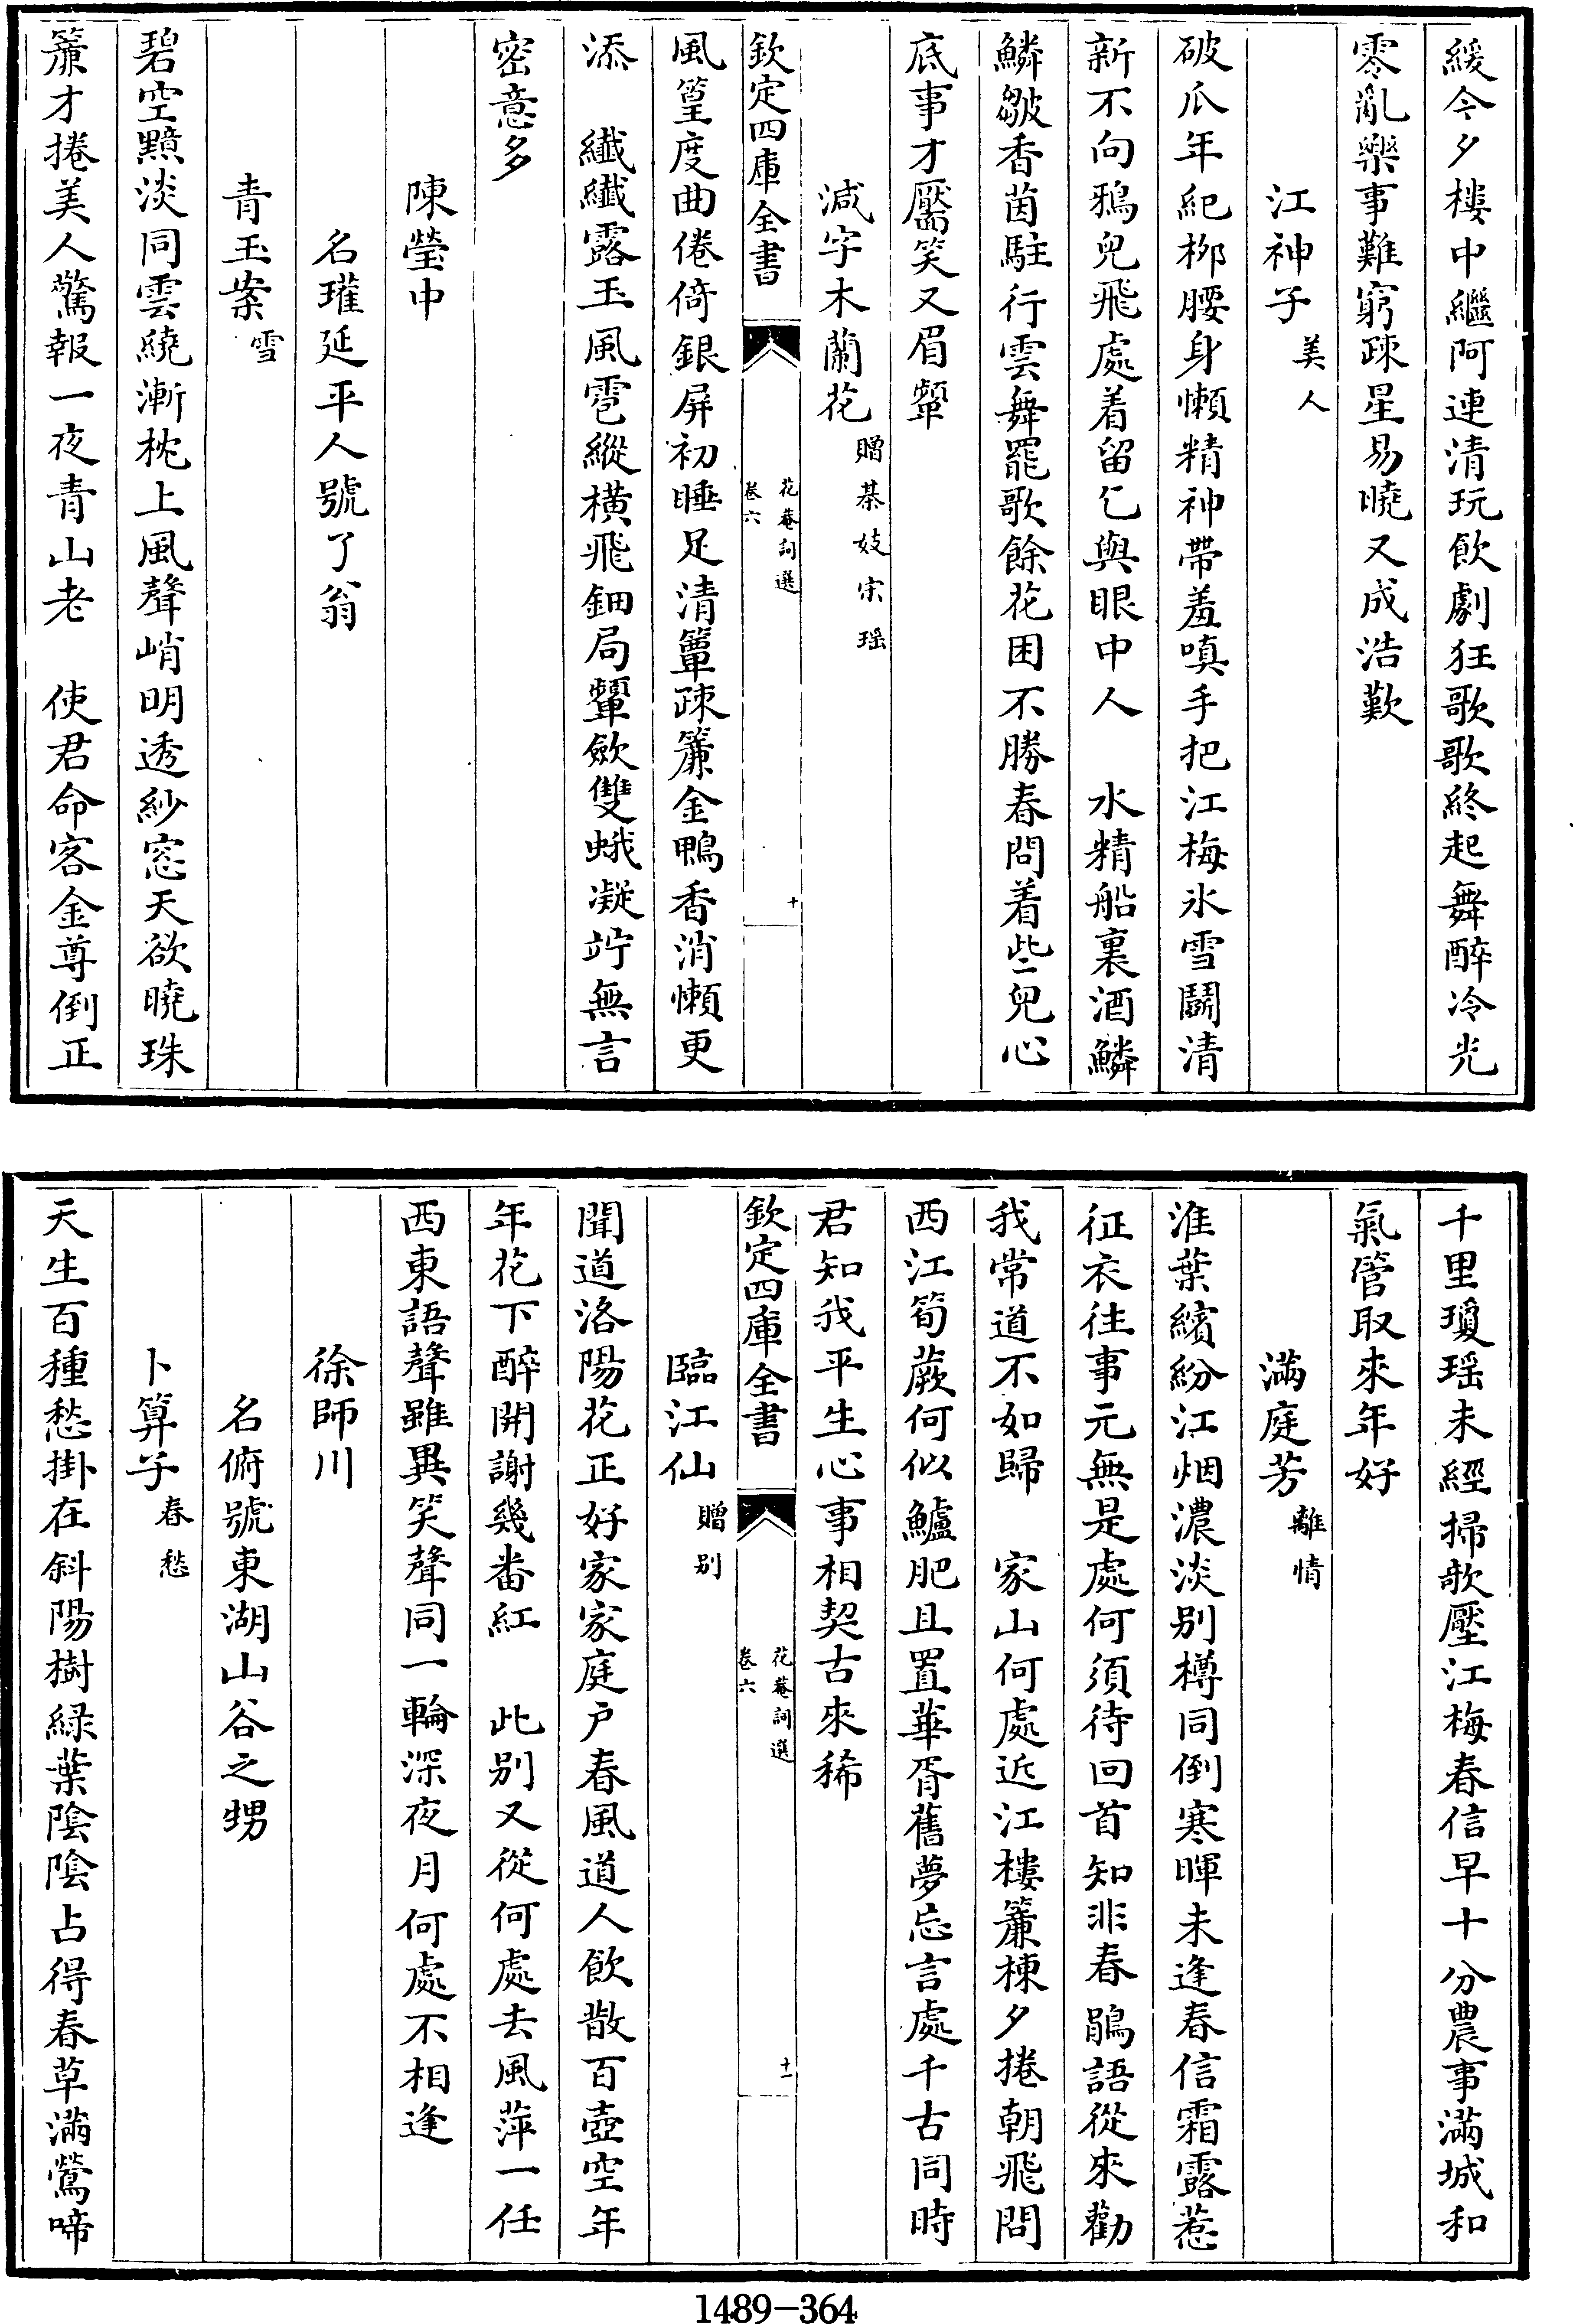 緩今夕樓中繼阿連清玩飲劇狂歌歌終起舞醉冷光
零亂樂事難窮疎星易曉又成浩歎
江神子美人
破瓜年紀柳腰身懶精神帶羞嗔手把江梅氷雪鬭清
新不向鴉兒飛處着留乞與眼中人　水精船裏酒鱗
鱗皺香茵駐行雲舞罷歌餘花困不勝春問着些兒心
底事才靨笑又眉顰
減字木蘭花贈棊妓宋瑶
欽定四庫全書
花菴詞選
卷六
十
風篁度曲倦倚銀屏初睡足清簟疎簾金鴨香消懶更
添　纎纎露玉風雹縱横飛鈿局顰斂雙蛾凝竚無言
密意多
陳瑩中
名瓘延平人號了翁
青玉案雪
碧空黯淡同雲繞漸枕上風聲峭明透紗窓天欲曉珠
簾才捲美人驚報一夜青山老　使君命客金尊倒正
千里瓊瑶未經掃歌壓江梅春信早十分農事滿城和
氣管取來年好
滿庭芳離情
淮葉繽紛江烟濃淡别樽同倒寒暉未逢春信霜露惹
征衣往事元無是處何須待回首知非春鵑語從來勸
我常道不如歸　家山何處近江樓簾棟夕捲朝飛問
西江筍蕨何似鱸肥且置華胥舊夢忘言處千古同時
君知我平生心事相契古來稀
欽定四庫全書
花菴詞選
卷六
十一
臨江仙贈别
聞道洛陽花正好家家庭户春風道人飲散百壺空年
年花下醉開謝幾番紅　此别又從何處去風萍一任
西東語聲雖異笑聲同一輪深夜月何處不相逢
徐師川
名俯號東湖山谷之甥
卜算子春愁
天生百種愁掛在斜陽樹緑葉陰陰占得春草滿鶯啼
1489-364